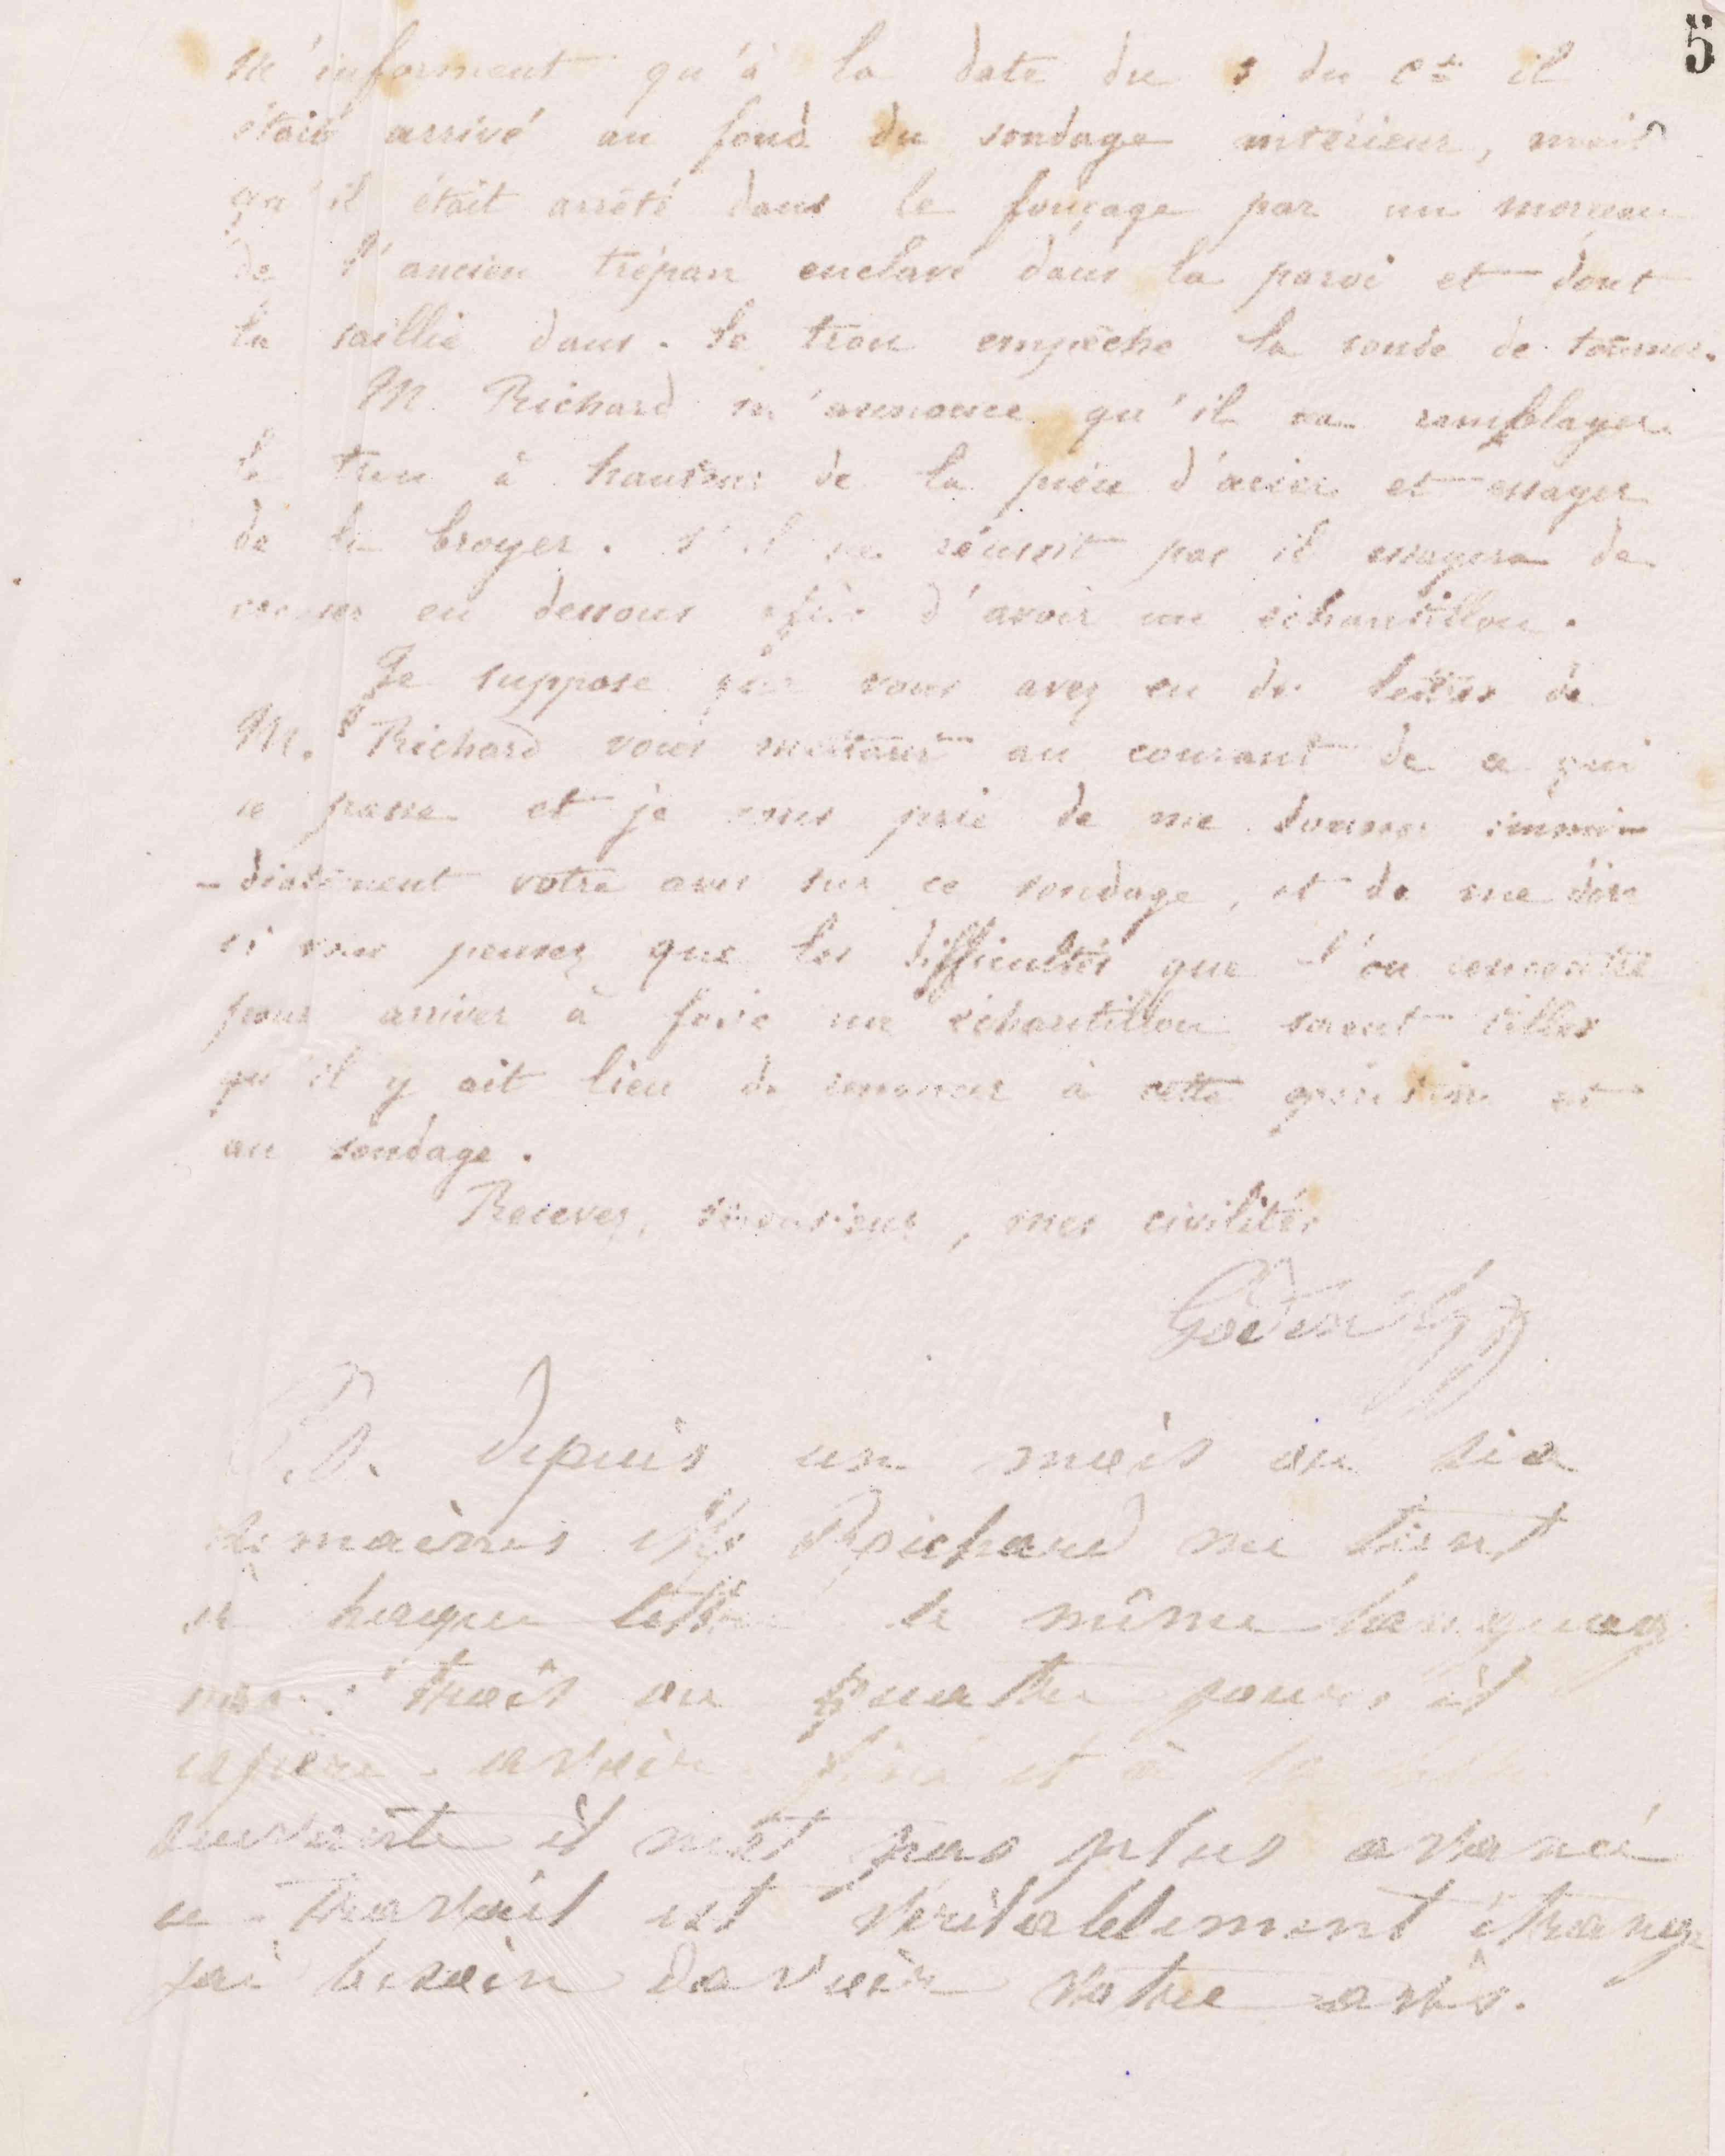 5
m'informent qu'à la date du 5 du Ct il
était arrivé au fond du sondage intérieur, mais
qu'il était arrêté dans le fonçage par un morceau
de l'ancien trépan enclavé dans la paroi et dont
la saillie dans le trou empêche la sonde de tourner.
M. Richard m'annonce qu'il va remblayer
le trou à hauteur de la pièce d'acier et essayer
de la broyer. S'il ne réussit pas il essayera de
creuser en dessous afin d'avoir un échantillon.
Je suppose que vous avez eu des lettres de
M. Richard vous mettant au courant de ce qui
se passe et je vous prie de me donner immé-
-diatement votre avis sur ce sondage, et de me dire
si vous pensez que les difficultés que l'on rencontre
pour arriver à faire un échantillon soient telles
qu'il y ait lieu de renoncer à cette opération et
au sondage.
Recevez, monsieur, mes civilités
P.S. depuis un mois ou six
semaines Mr Richard me tient
à chaque lettre le même language
trois ou quatre jours il
espère avoir fini et à la lettre
suivante il n'est pas plus avancé
ce travail est véritablement étrange
jai besoin davoir votre avis.